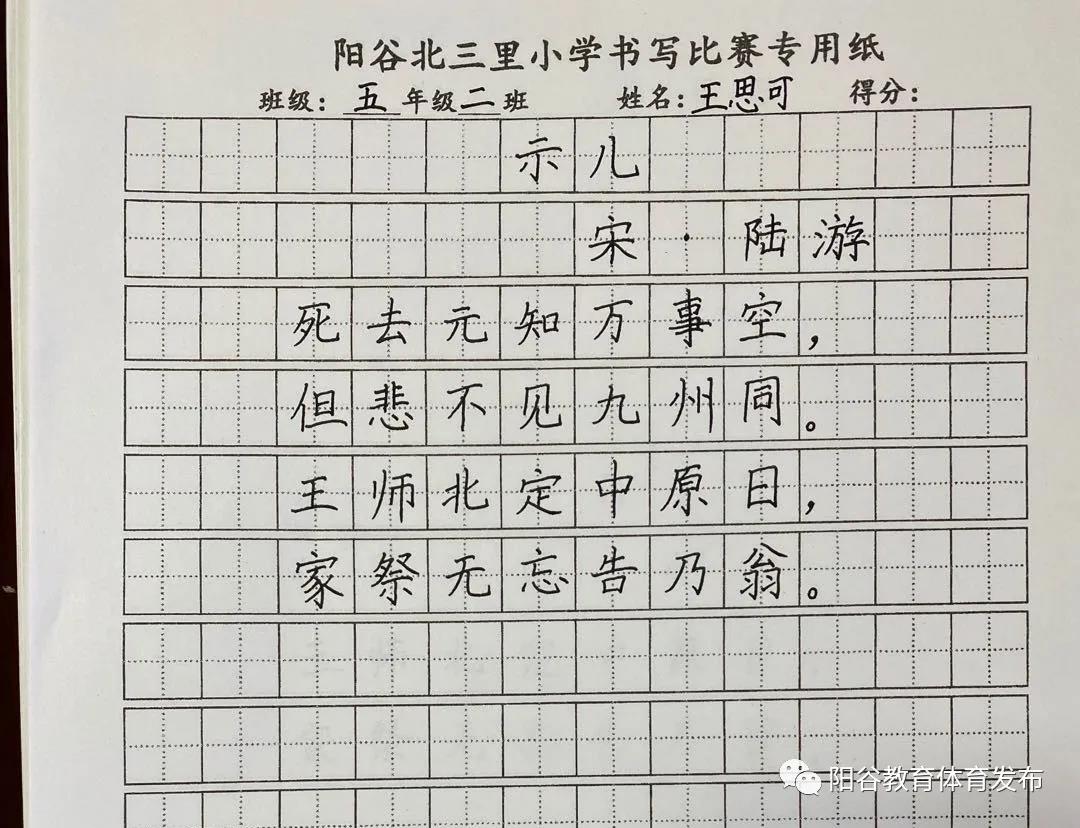 阳谷北三里小学书写比赛专用纸
班级：五年级二班 姓名：王思可 得分：
示儿
宋·陆游
死去元知万事空，
但悲不见九州同。
王师北定中原日，
家祭无忘告乃翁。
阳谷教育体育发布